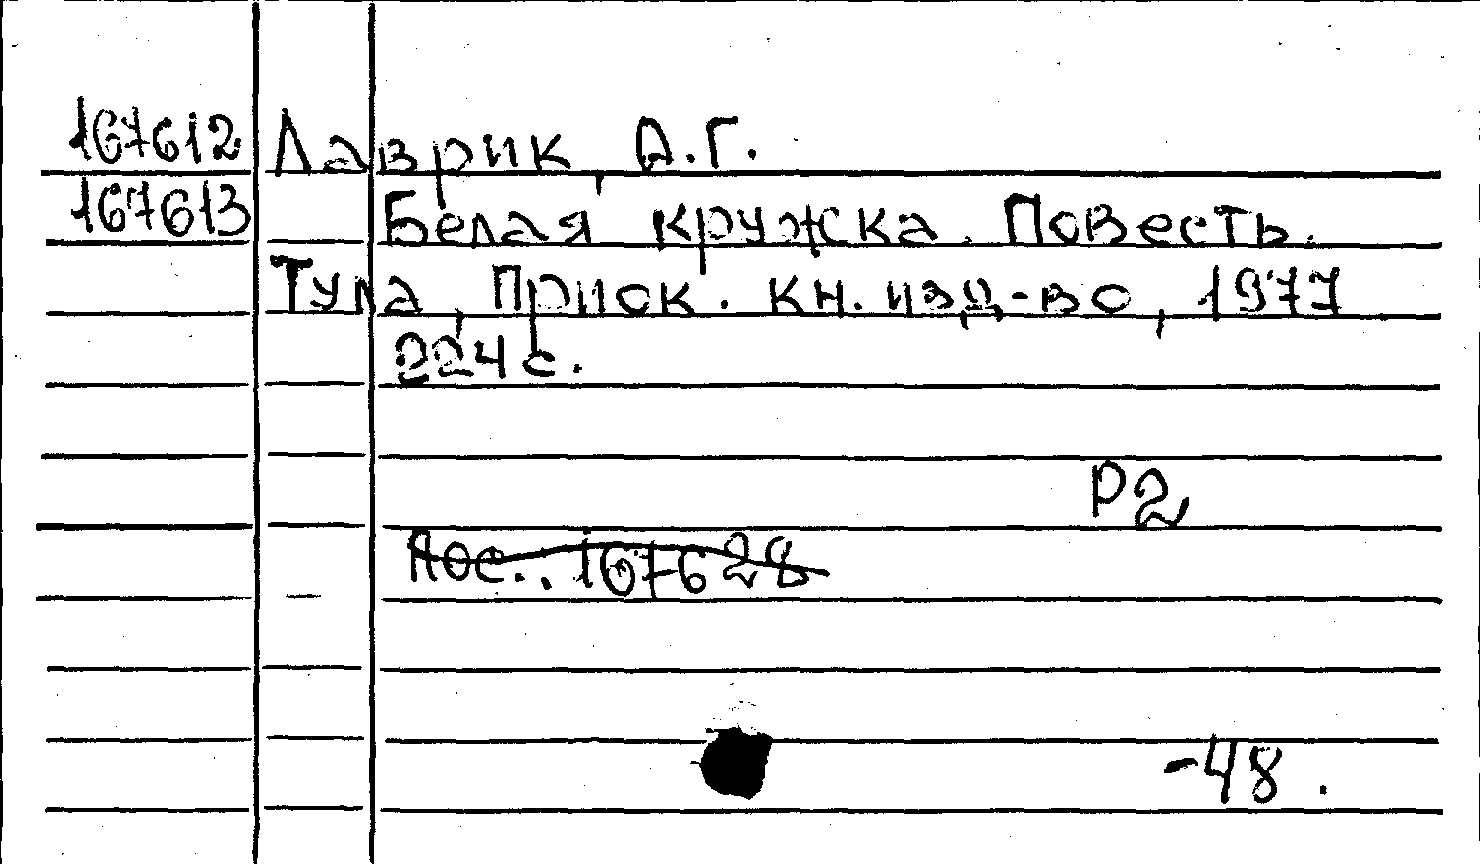 167612 Лаврик, А.Г.
167613 Белая кружка. Повесть.
Тула, Приок. кн. изд-во, 1977
224 с.
Р2
167628
-48.